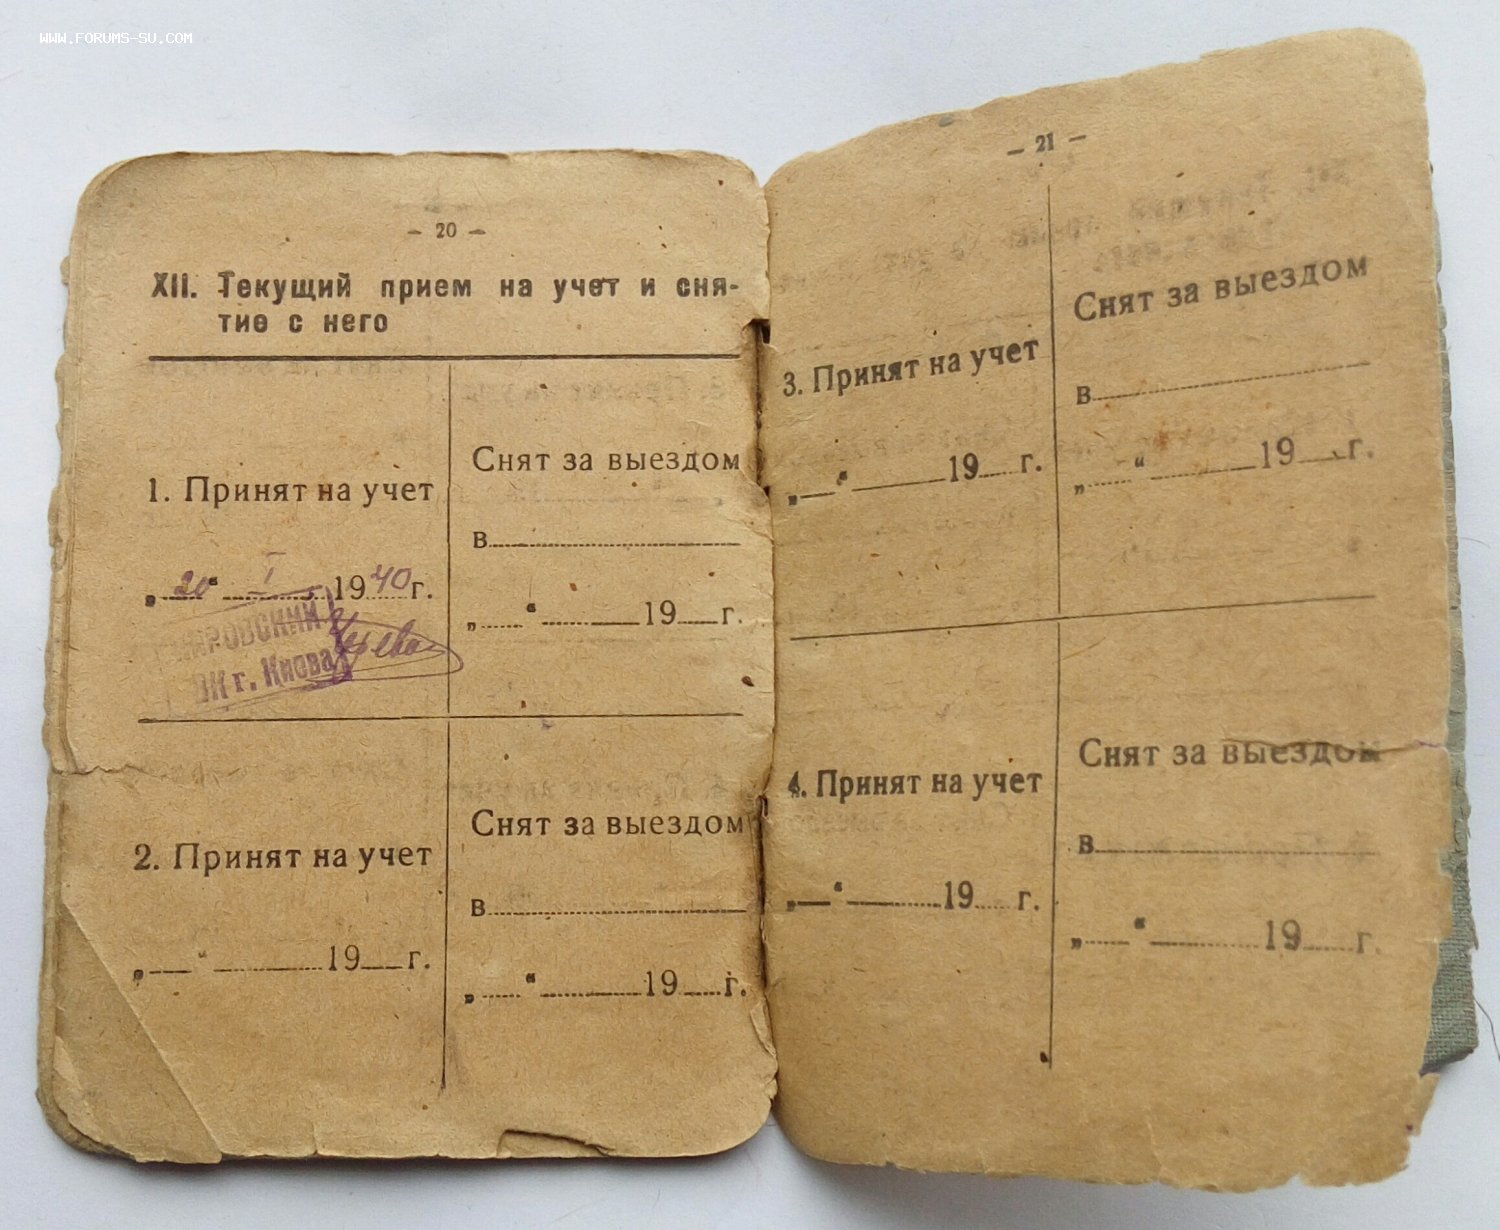 WWW.FORUMS-SU.COM
– 20 –
XII. Текущий прием на учет и сня-
тие с него
1. Принят на учет
„20“ I 1940 г.
г. Киева
Снят за выездом
в
„ “ 19 г.
2. Принят на учет
„ “ 19 г.
Снят за выездом
в
„ “ 19 г.
– 21 –
3. Принят на учет
„ “ 19 г.
Снят за выездом
в
„ “ 19 г.
4. Принят на учет
„ “ 19 г.
Снят за выездом
в
„ “ 19 г.